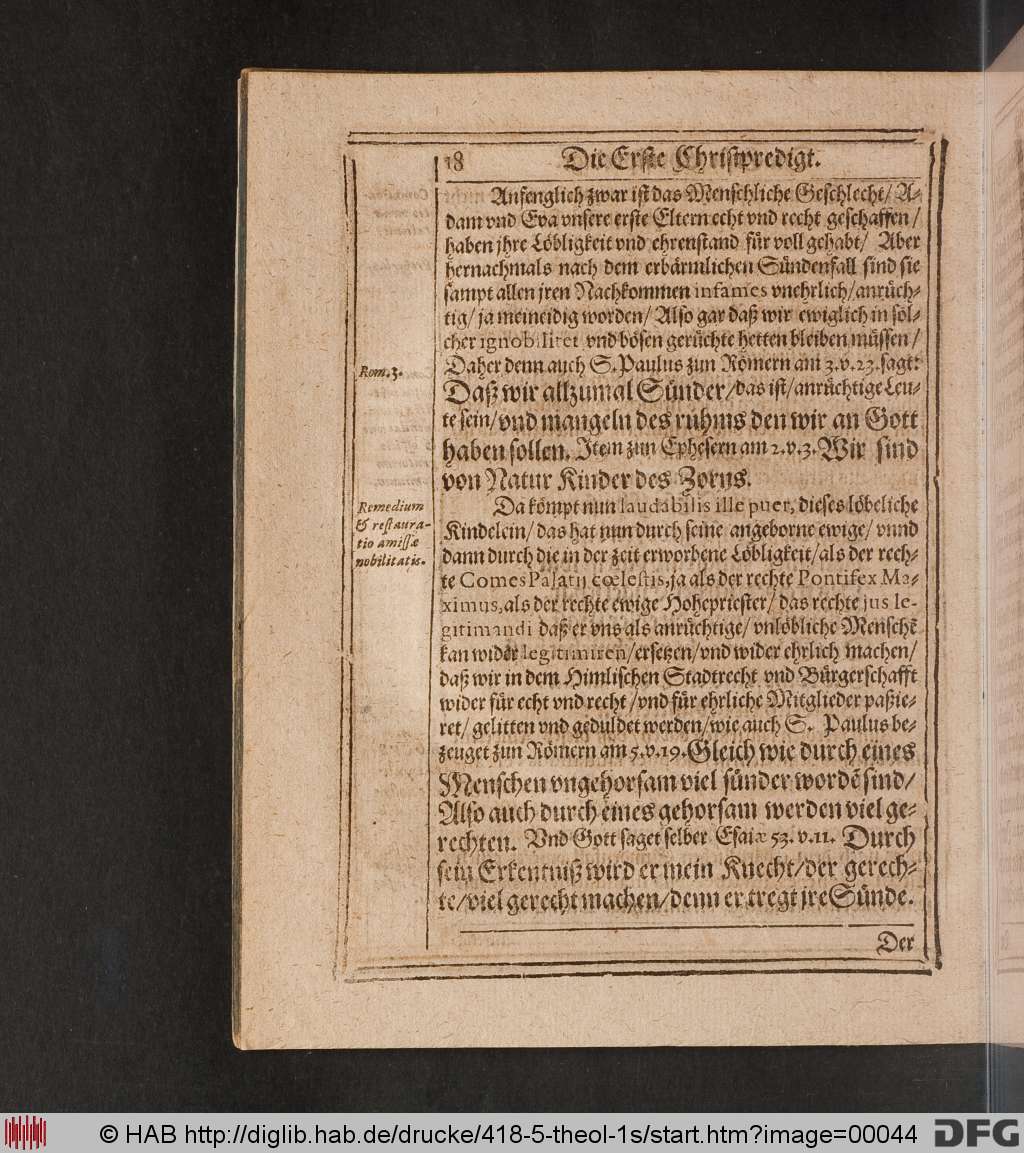 18 Die Erste Christpredigt.
Anfenglich zwar ist das Menschliche Geschlecht/ A-
dam vnd Eva vnsere erste Eltern echt vnd recht geschaffen/
haben jhre Löbligkeit vnd ehrenstand für voll gehabt/ Aber
hernachmals nach dem erbärmlichen Sündenfall sind sie
sampt allen jren Nachkommen infames vnehrlich/anrüch-
tig/ ja meineidig worden/ Also gar daß wir ewiglich in sol-
cher ignobilitet vnd bösen gerüchte hetten bleiben müssen/
Daher denn auch S. Paulus zun Römern am 3.v.23.sagt:
Rom.3.
Daß wir allzumal Sünder/das ist/anrüchtige Leu-
te sein/vnd mangeln des ruhms den wir an Gott
haben sollen. Item zun Ephesern am 2.v.3.Wir sind
von Natur Kinder des Zorns.
Da kömpt nun laudabilis ille puer, dieses löbeliche
Remedium
& restaura-
tio amissæ
nobilitatis.
Kindelein/das hat nun durch seine angeborne ewige/ vnnd
dann durch die in der zeit erworbene Löbligkeit/als der rech-
te Comes Palatij cœlestis,ja als der rechte Pontifex Ma-
ximus,als der rechte ewige Hohepriester/ das rechte jus le-
gitimandi daß er vns als anrüchtige/ vnlöbliche Menschē
kan wider legitimiren/ersetzen/vnd wider ehrlich machen/
daß wir in dem Himlischen Stadtrecht vnd Bürgerschafft
wider für echt vnd recht/vnd für ehrliche Mitglieder paßie-
ret/ gelitten vnd geduldet werden/wie auch S. Paulus be-
zeuget zun Römern am 5.v.19.Gleich wie durch eines
Menschen vngehorsam viel sünder wordē sind/
Also auch durch eines gehorsam werden viel ge-
rechten. Vnd Gott saget selber Esaiæ 53. v.11. Durch
sein Erkentniß wird er mein Knecht/der gerech-
te/viel gerecht machen/denn er tregt jre Sünde.
Der
© HAB http://diglib.hab.de/drucke/418-5-theol-1s/start.htm?image=00044
DFG